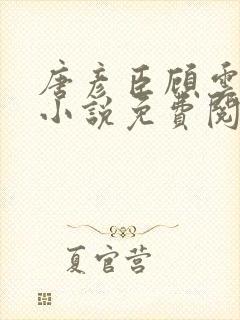 唐彦臣顾雲
小说免费阅
夏官营